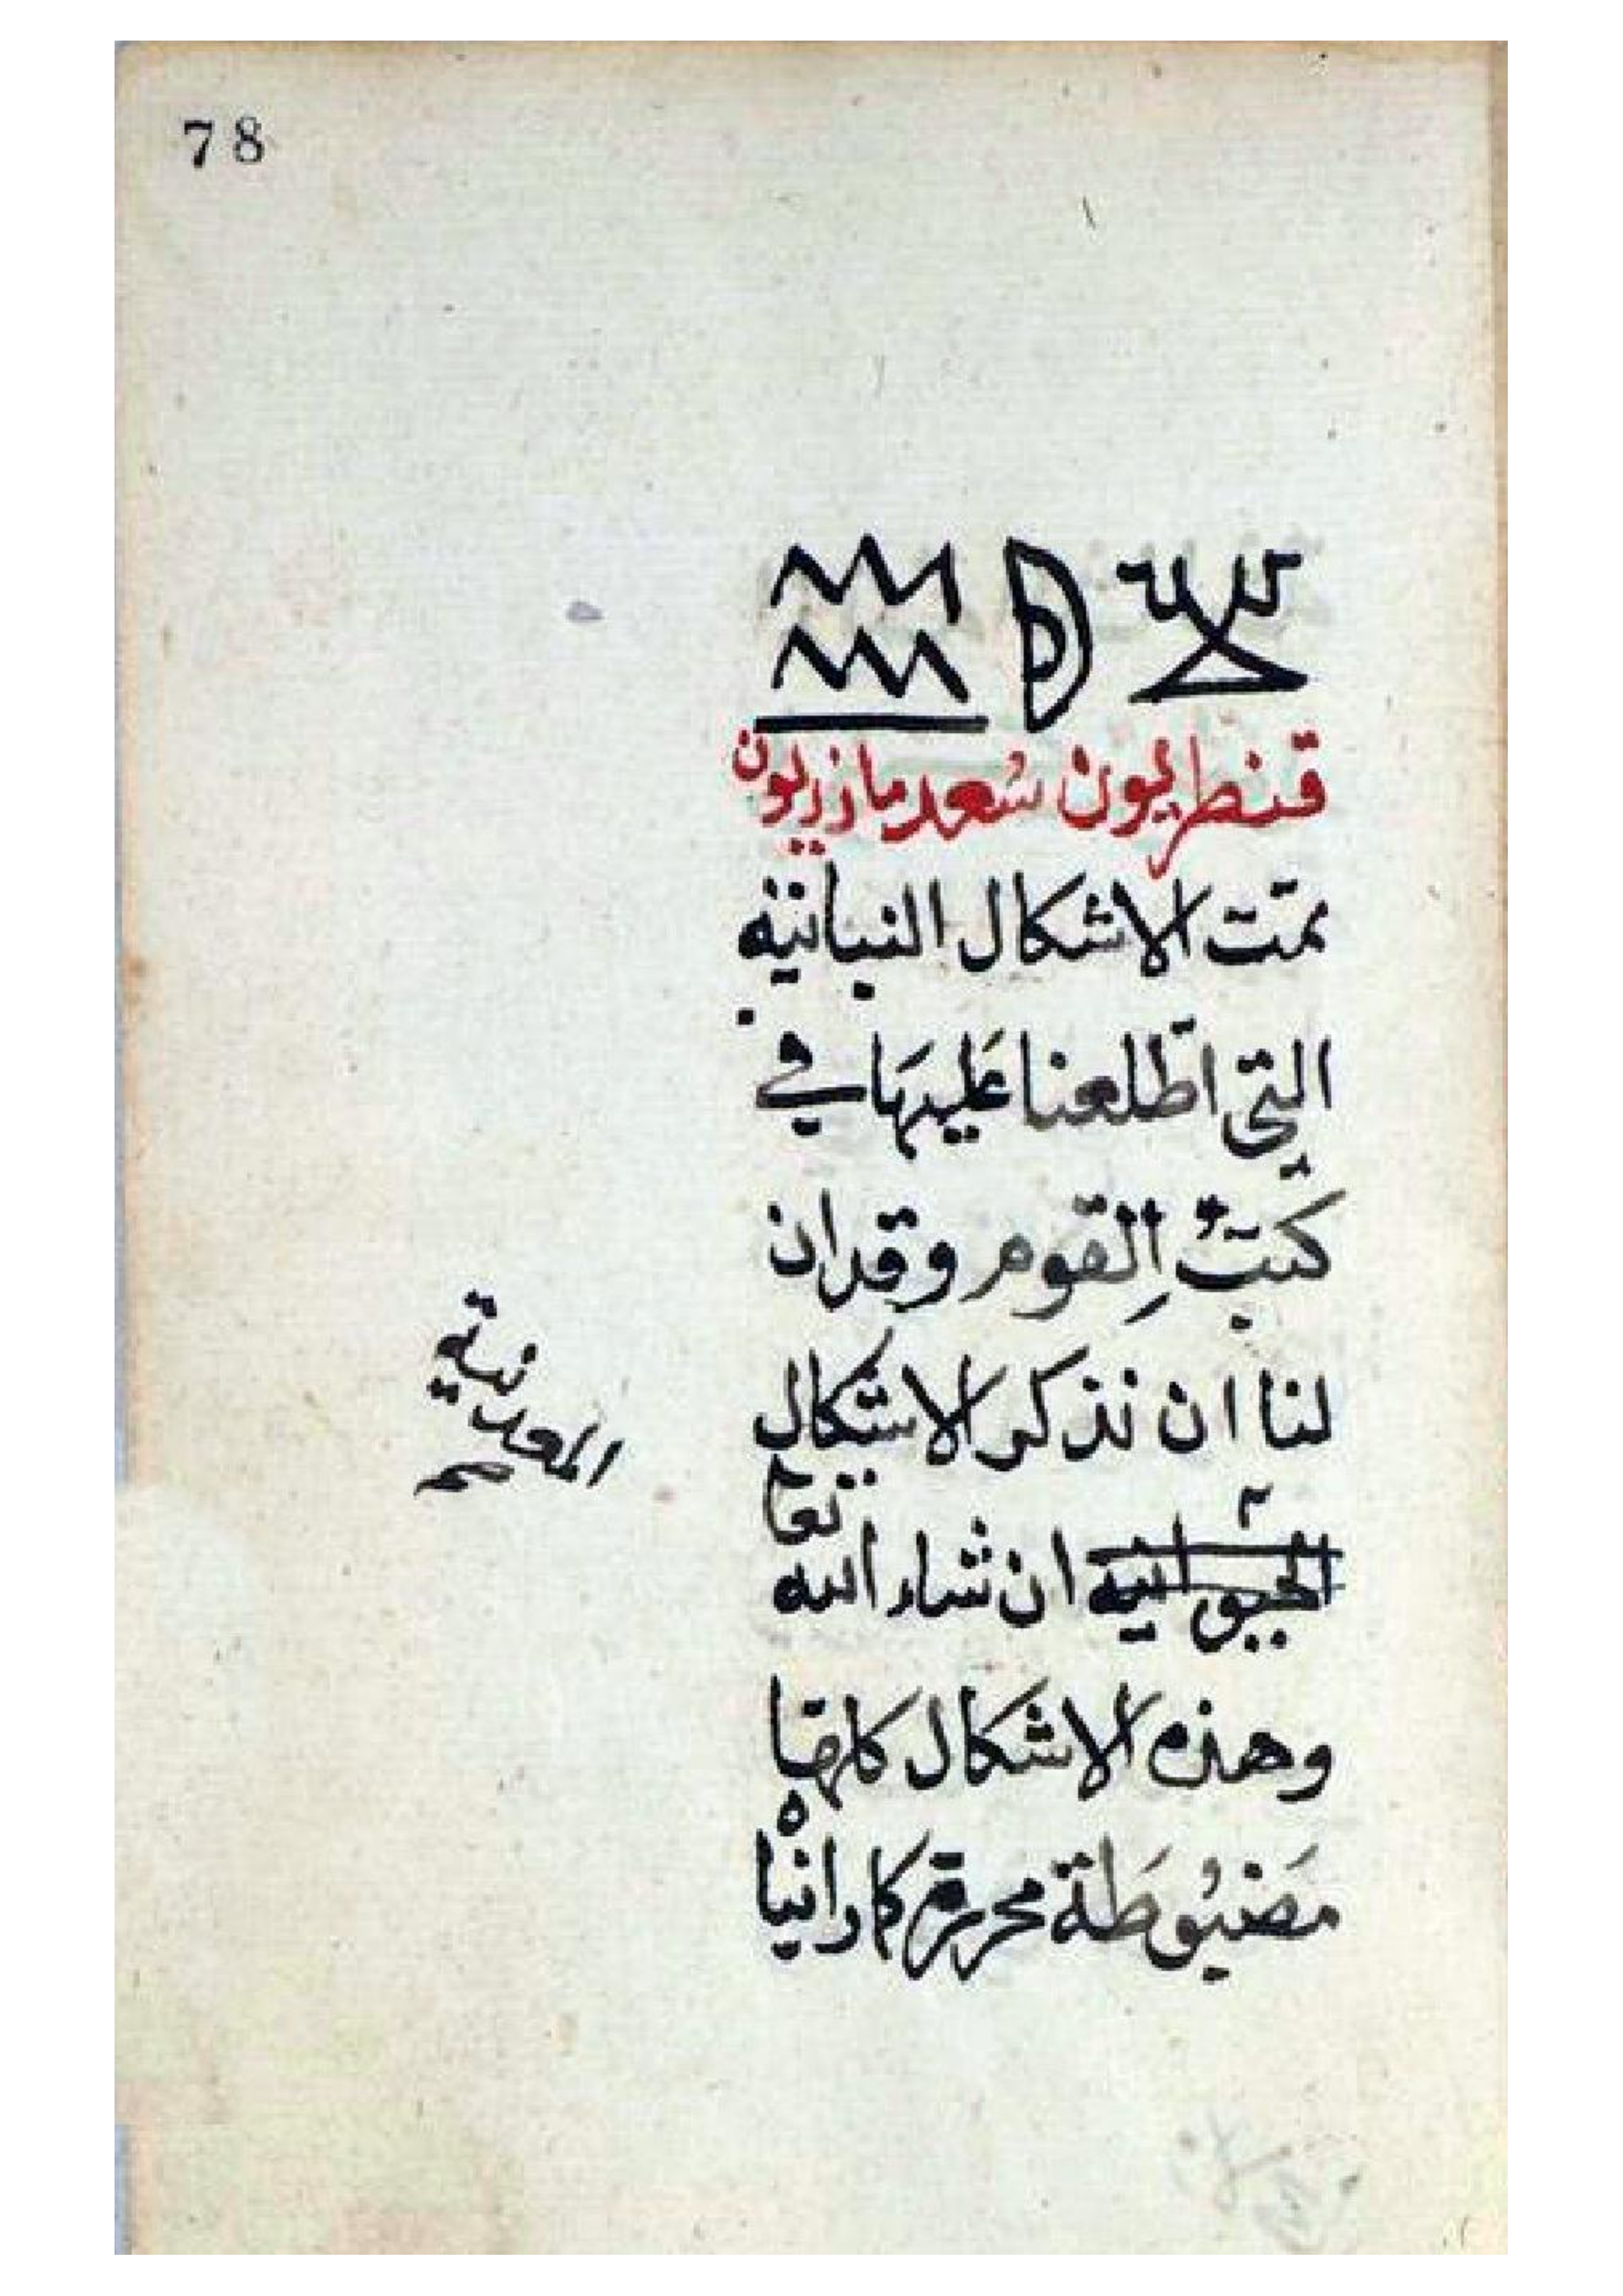 78
قنطريون سُعد مازريون
تمّت الاشكال النباتية
التي اطّلعنا عَليهَا في
كتبُ القوم وقد ان
لنا ان نذكر الاشكال
الحيوانية ان شاء الله تعا
المعدنية صح
وهذه الاشكال كلها
مَضبُوطَة محررة كما راينا
ه